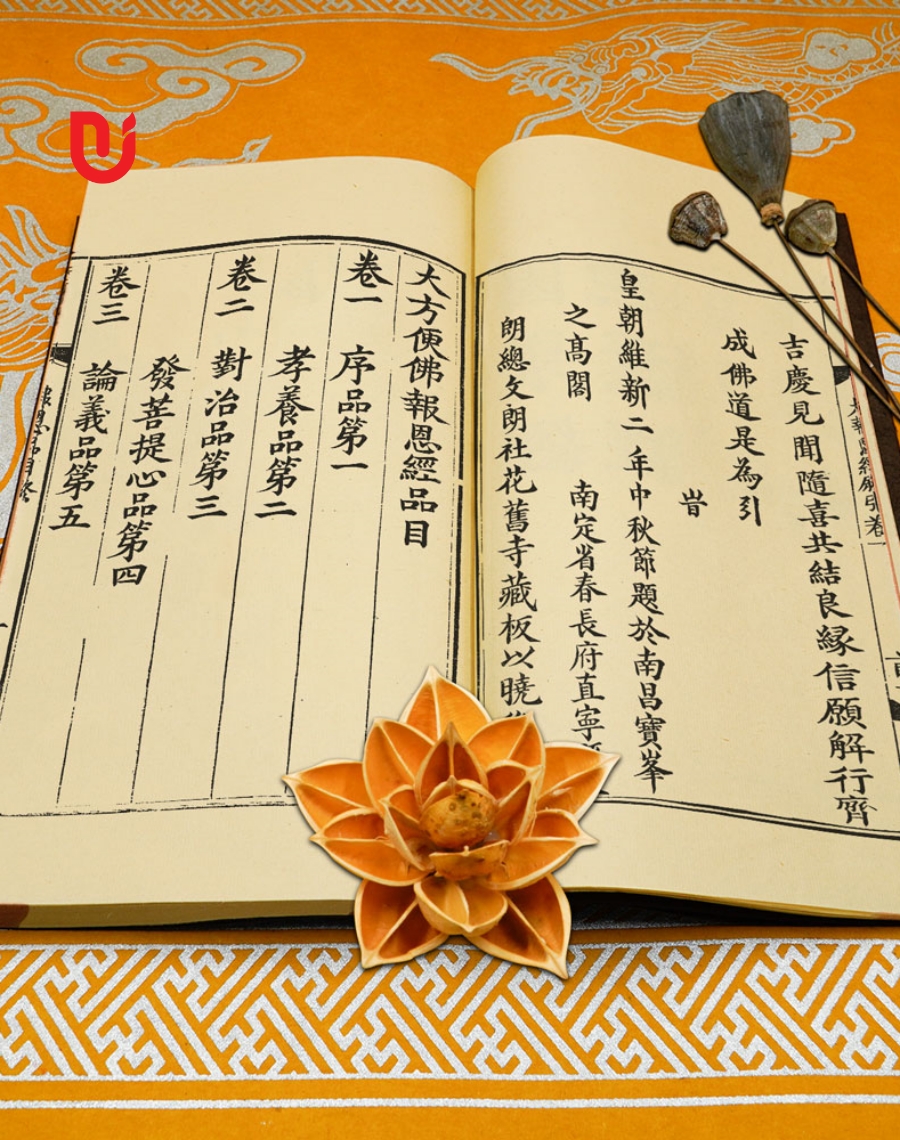 吉慶見聞隨喜共結良緣信願解行齊
成佛道是為引
旹
皇朝維新二年中秋節題於南昌寶峯
之高閣
南定省春長府直寧
朗總文朗社花舊寺藏板以曉
大方便佛報恩經品目
卷一 序品第一
孝養品第二
卷二 對治品第三
發菩提心品第四
卷三 論義品第五